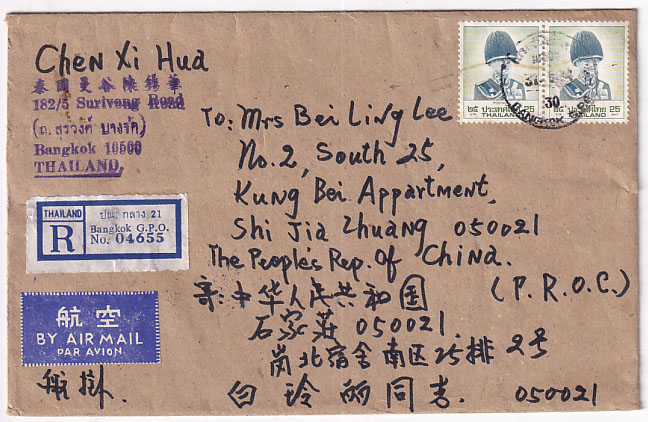 Chen Xi Hua
泰國曼谷陳錫華
182/5 Surivong Road
(ถ. สุรวงค์ บางรัก)
Bangkok 10500
THAILAND.
๒๕ ประเทศไทย 25
THAILAND
๒๕ ประเทศไทย 25
THAILAND
30
BANGKOK G.P.O.
To: Mrs Bei Ling Lee
No. 2, South 25,
Kung Bei Appartment,
Shi Jia Zhuang 050021
The People's Rep. Of China.
(P.R.O.C.)
THAILAND
R
ปณ. กลาง 21
Bangkok G.P.O.
No. 04655
航空
BY AIR MAIL
PAR AVION
航掛.
寄:中华人民共和国
石家莊 050021.
岗北宿舍南区25排 2号
白玲丽同志. 050021